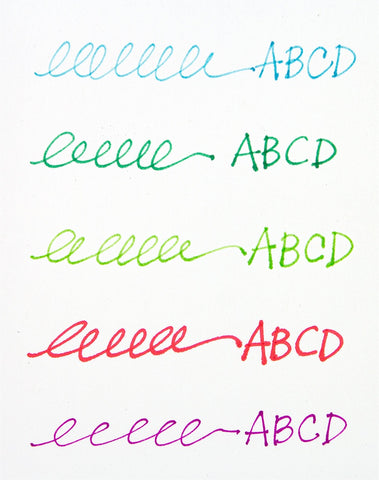 ABCD
ABCD
ABCD
ABCD
ABCD